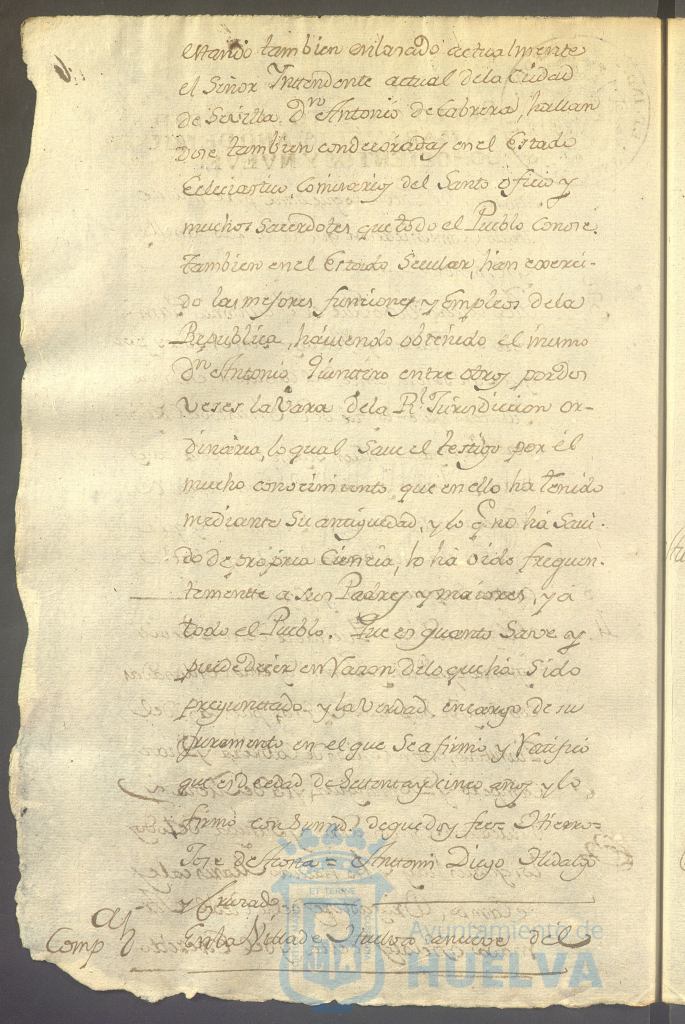 estando tambien enlasado actualmente
el Señor Yntendente actual dela Ciudad
de Sevilla Dn Antonio de Cabrera, hallan
dose tambien condecoradas en el Estado
Eclesiastico Comisarios del Santo oficio y
muchos Sacerdotes, que todo el Pueblo Conose.
tambien en el Estado Secular, han exerci-
do las mejores funciones y Empleos dela
Republica, haviendo obtenido el mismo
Dn Antonio Quintero entre otros por dos
veses la Vara de la Rl Jurisdiccion or-
dinaria, lo qual Save el testigo por él
mucho conocimiento que en ello ha tenido
mediante Su antiguedad, y lo q no ha Savi-
do de propria Ciencia, lo ha oido frequen-
temente a sus Padres y maiores, y á
todo el Pueblo. Que es quanto Save y
puede decir en Razon delo que ha Sido
preguntado y la Verdad encargo de su
Juramento en el que Se afirmó y Ratificó
que es de edad de Setenta y cinco años y lo
firmó con Su md. de que doy fee =
Jose de Acosta = Antoni Diego Hidalgo
y Cruzado
En la Villa de Huelva a nueve del
Ayuntamiento de
HUELVA